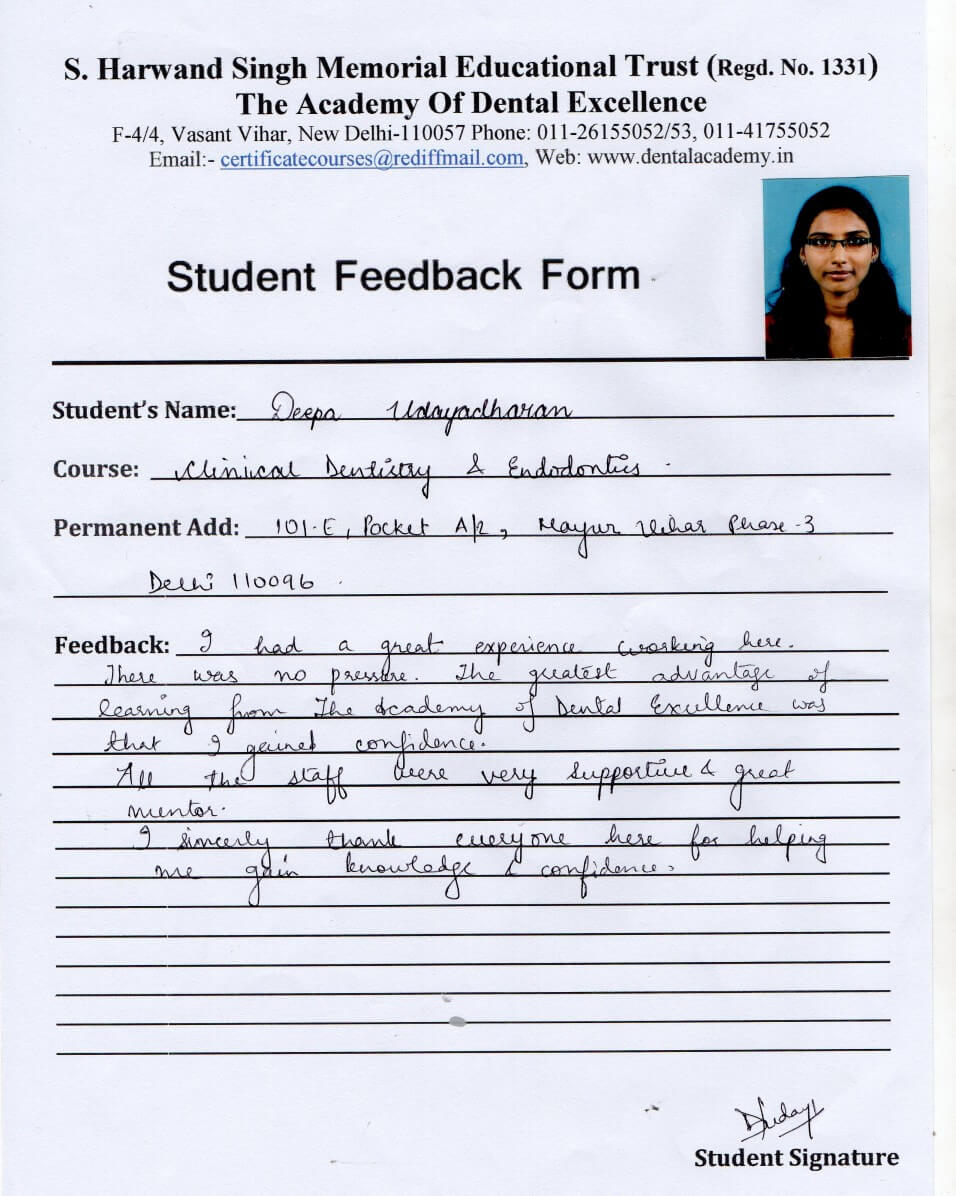 S. Harwand Singh Memorial Educational Trust (Regd. No. 1331)
The Academy Of Dental Excellence
F-4/4, Vasant Vihar, New Delhi-110057 Phone: 011-26155052/53, 011-41755052
Email:- certificatecourses@rediffmail.com, Web: www.dentalacademy.in
Student Feedback Form
Student's Name: Deepa Udayadharan
Course: Clinical Dentistry & Endodontics
Permanent Add: 101-E, Pocket A/2, Mayur Vihar Phase-3
Delhi 110096
Feedback: I had a great experience working here.
There was no pressure. The greatest advantage of
learning from The Academy of Dental Excellence was
that I gained confidence.
All the staff were very supportive & great
mentor.
I sincerly thank everyone here for helping
me gain knowledge & confidence.
Student Signature